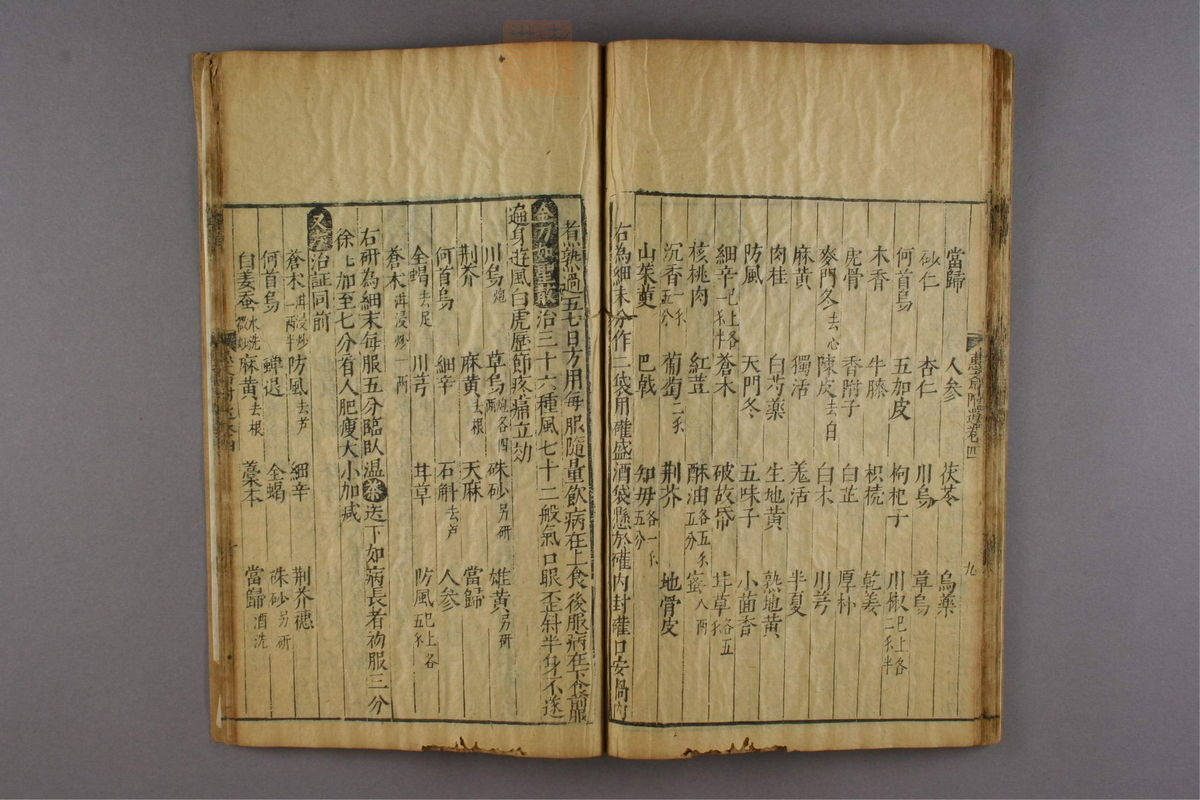 當歸 人參 茯苓 烏藥
砂仁 杏仁 川烏 草烏
何首烏 五加皮 枸杞子 川椒已上各二錢半
木香 牛膝 枳殼 乾姜
虎骨 香附子 白芷 厚朴
麥門冬去心 陳皮去白 白朮 川芎
麻黃 獨活 羌活 半夏
肉桂 白芍藥 生地黃 熟地黃
防風 天門冬 五味子 小茴香
細辛已上各一錢半 蒼朮 破故帋 甘草各五錢
核桃肉 紅荳 酥油各五錢五分 蜜八兩
沉香一錢五分 葡萄二錢 荊芥 地骨皮
山茱萸 巴戟 知母各一錢五分
右為細末分作二袋用罐盛酒袋懸於罐內封罐口安鍋內
煮熟過五七日方用每服隨量飲病在上食後服病在下食前服
治三十六種風七十二般氣口眼歪斜半身不遂
遍身遊風白虎歷節疼痛立効
川烏炮 草烏炮各四兩 硃砂另研 雄黃另研
荊芥 麻黃去根 天麻 當歸
何首烏 細辛 石斛去芦 人參
全蝎去足 川芎 甘草 防風已上各五錢
蒼朮泔浸炒一兩
右研為細末每服五分臨臥溫茶送下如病長者初服三分
徐徐加至七分看人肥瘦大小加減
又方治証同前
蒼朮泔浸炒一兩半 防風去芦 細辛 荊芥穗
何首烏 蟬退 全蝎 硃砂另研
白姜蚕水洗微炒 麻黃去根 藁本 當歸酒洗
卷四
九